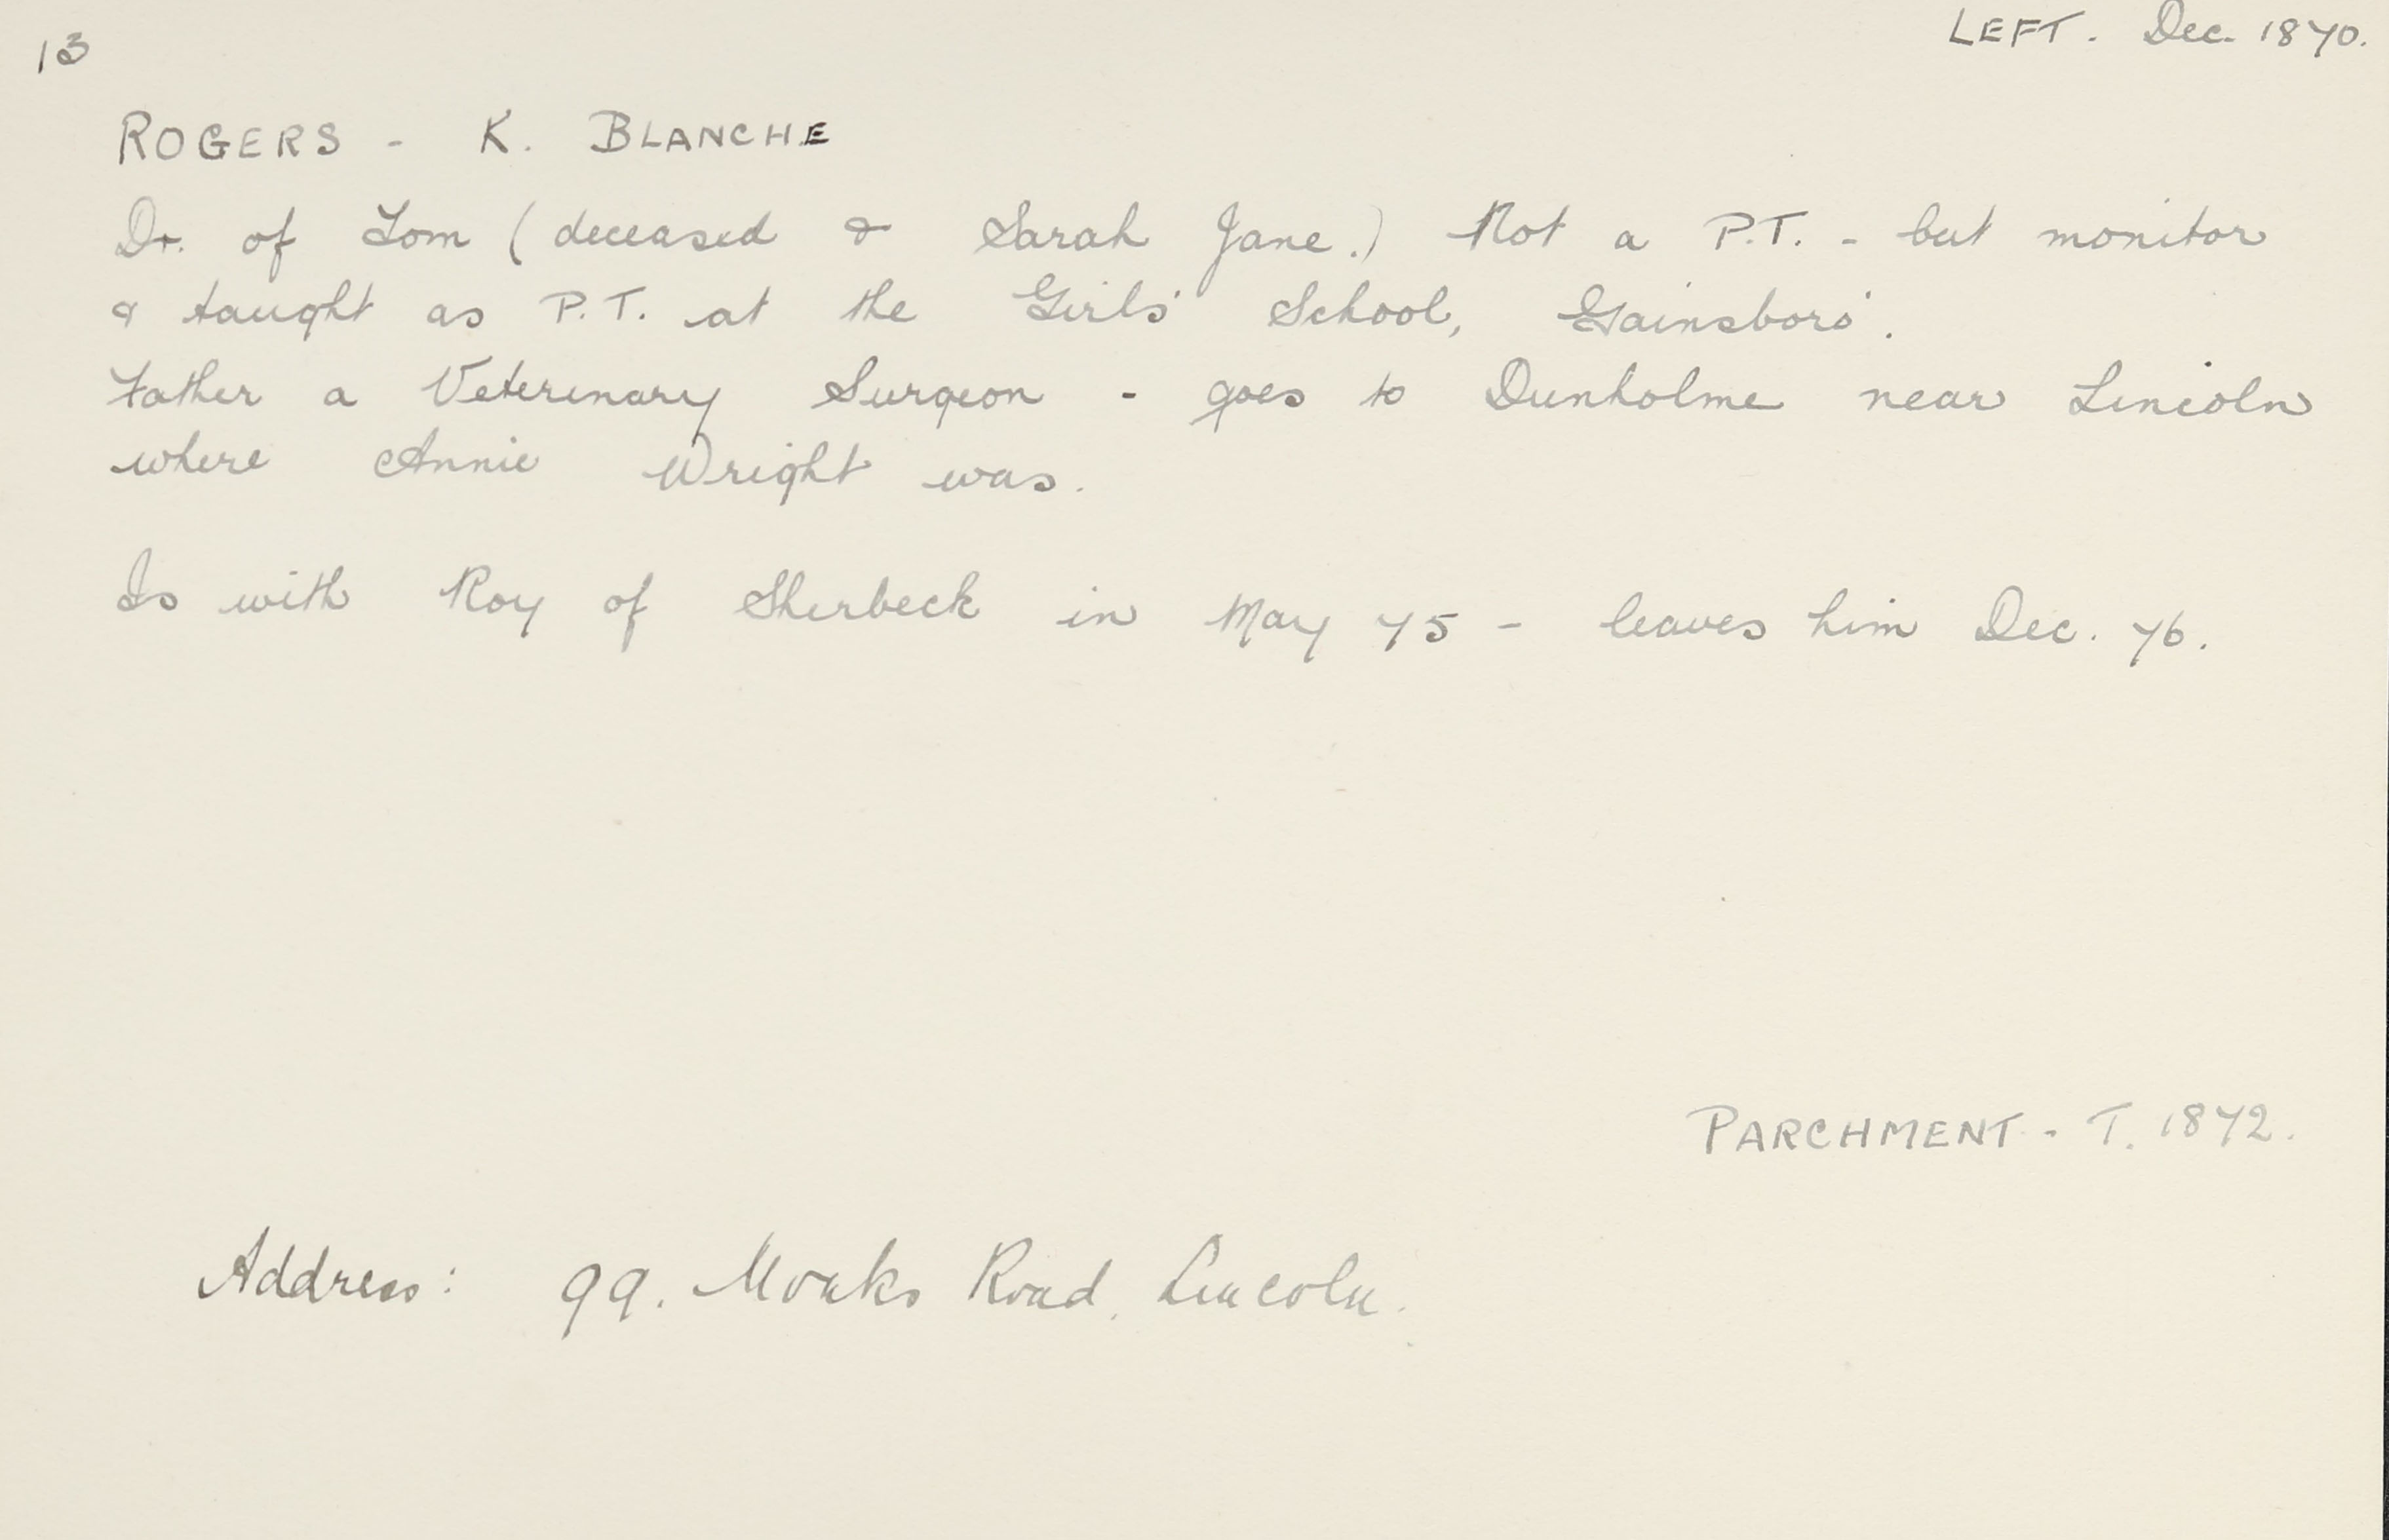 13
LEFT. Dec. 1870.
ROGERS - K. BLANCHE
Dr. of Tom (deceased & Sarah Jane.) Not a P.T. - but monitor
& taught as P.T. at the Girls' School, Gainsboro'.
Father a Veterinary Surgeon - goes to Dunholme near Lincoln
where Annie Wright was.
Is with Roy of Sherbeck in May 75 - leaves him Dec. 76.
PARCHMENT - T. 1872.
Address: 99. Monks Road, Lincoln.